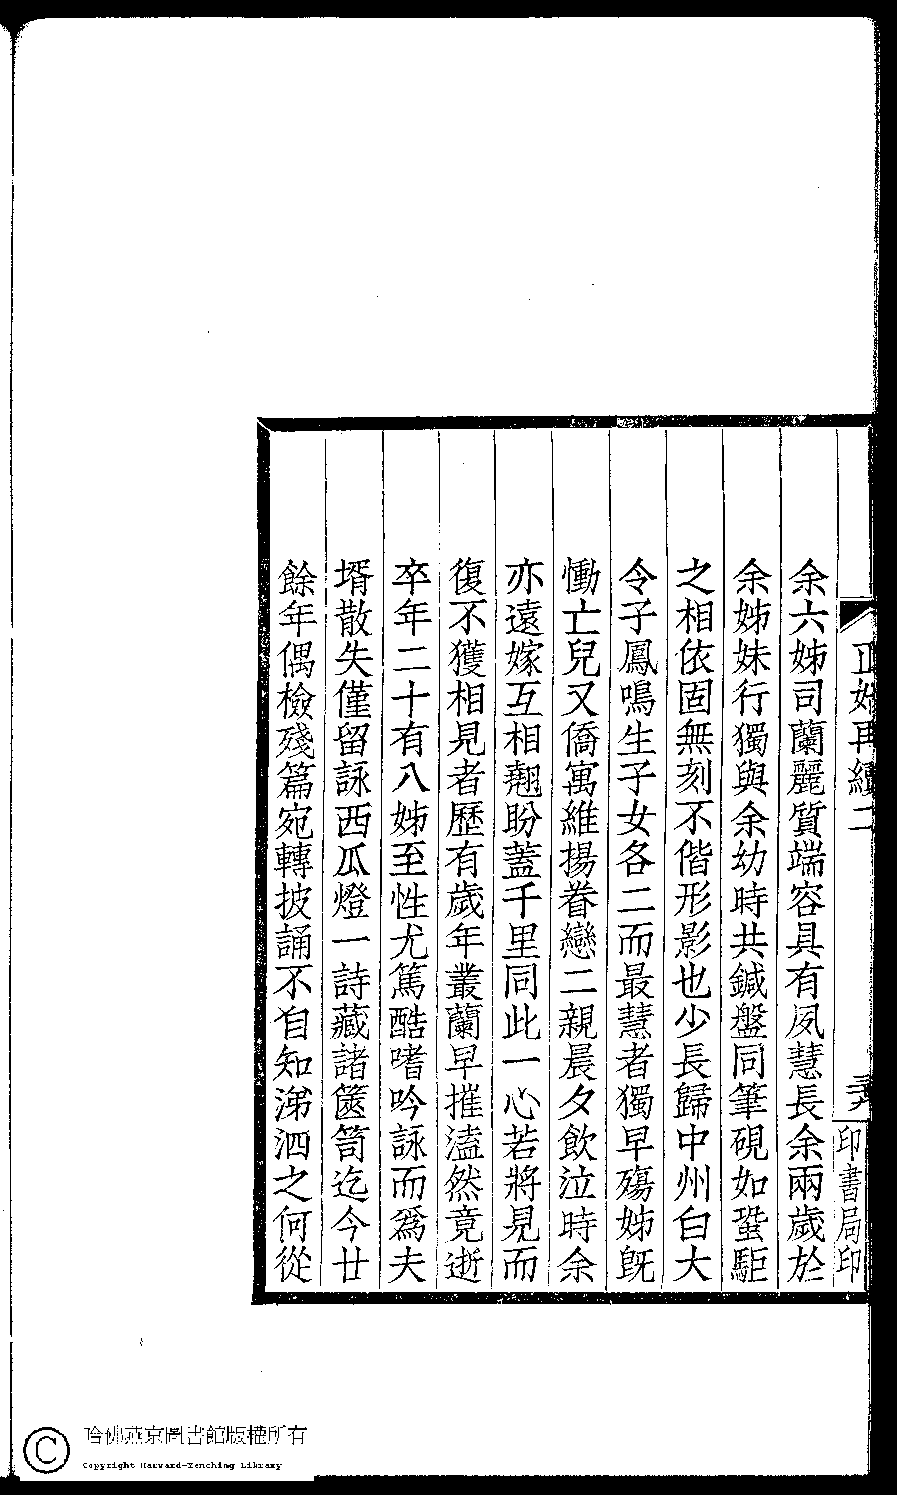 正始再續二
印書局印
余六姊司蘭麗質端容具有夙慧長余兩歲於
余姊妹行獨與余幼時共鍼盤同筆硯如蛩駏
之相依固無刻不偕形影也少長歸中州白大
令子鳳鳴生子女各二而最慧者獨早殤姊旣
慟亡兒又僑寓維揚眷戀二親晨夕飲泣時余
亦遠嫁互相翹盼蓋千里同此一心若將見而
復不獲相見者歷有歲年叢蘭早摧溘然竟逝
卒年二十有八姊至性尤篤酷嗜吟詠而爲夫
壻散失僅留詠西瓜燈一詩藏諸篋笥迄今廿
餘年偶檢殘篇宛轉披誦不自知涕泗之何從
哈佛燕京圖書館版權所有
Copyright Harvard-Yenching Library